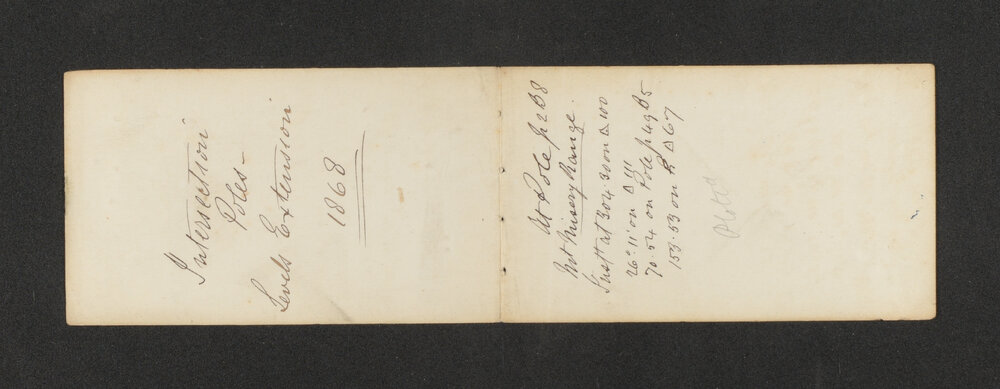 Intersection
Poles -
Levels Extension
1868
At Pole p 2 B 8
Mt Misery Range.
Inst at 304.30 on Δ 100
26°.11' on Δ 111
70.54 on Pole p 49 B 5
153.53 on Δ 67
Plotted